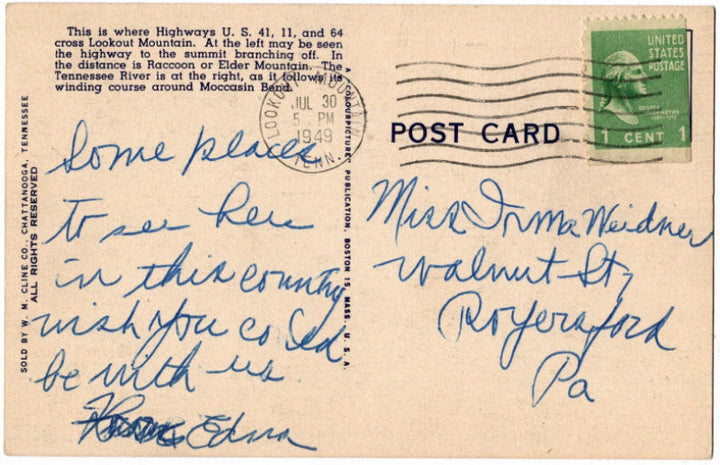 This is where Highways U. S. 41, 11, and 64
cross Lookout Mountain. At the left may be seen
the highway to the summit branching off. In
the distance is Raccoon or Elder Mountain. The
Tennessee River is at the right, as it follows its
winding course around Moccasin Bend.
SOLD BY W. M. CLINE CO., CHATTANOOGA, TENNESSEE
ALL RIGHTS RESERVED
Some places
to see here
in this country
wish you could
be with us
Edna
COLOURPICTURES PUBLICATION, BOSTON 15, MASS. U. S. A.
LOOKOUT MOUNTAIN
JUL 30
5 PM
1949
TENN.
POST CARD
UNITED
STATES
POSTAGE
GEORGE
WASHINGTON
1 CENT 1
Miss Irma Weidner
Walnut St,
Royersford
Pa